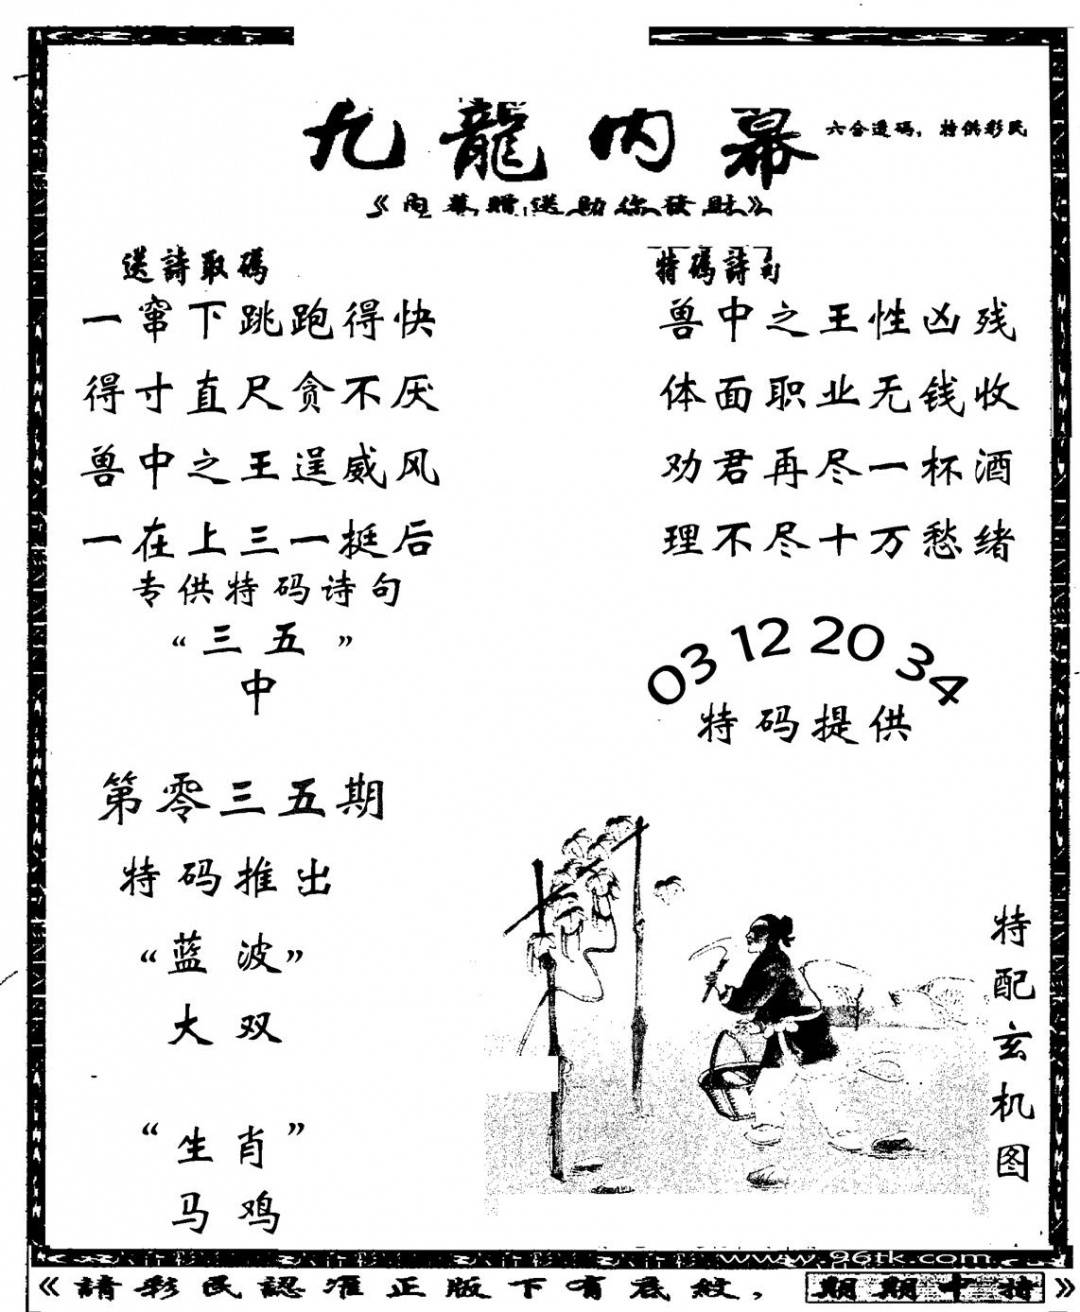 九龍内幕
六合透码，特供彩民
《内幕赠送助你发财》
送詩取碼
一窜下跳跑得快
得寸直尺贪不厌
兽中之王逞威风
一在上三一挺后
专供特码诗句
“三五”
中
第零三五期
特码推出
“蓝波”
大双
“生肖”
马鸡
特碼詩句
兽中之王性凶残
体面职业无钱收
劝君再尽一杯酒
理不尽十万愁绪
03 12 20 34
特码提供
特配玄机图
www.96tk.com
《請彩民認准正版下有底紋，期期中特》